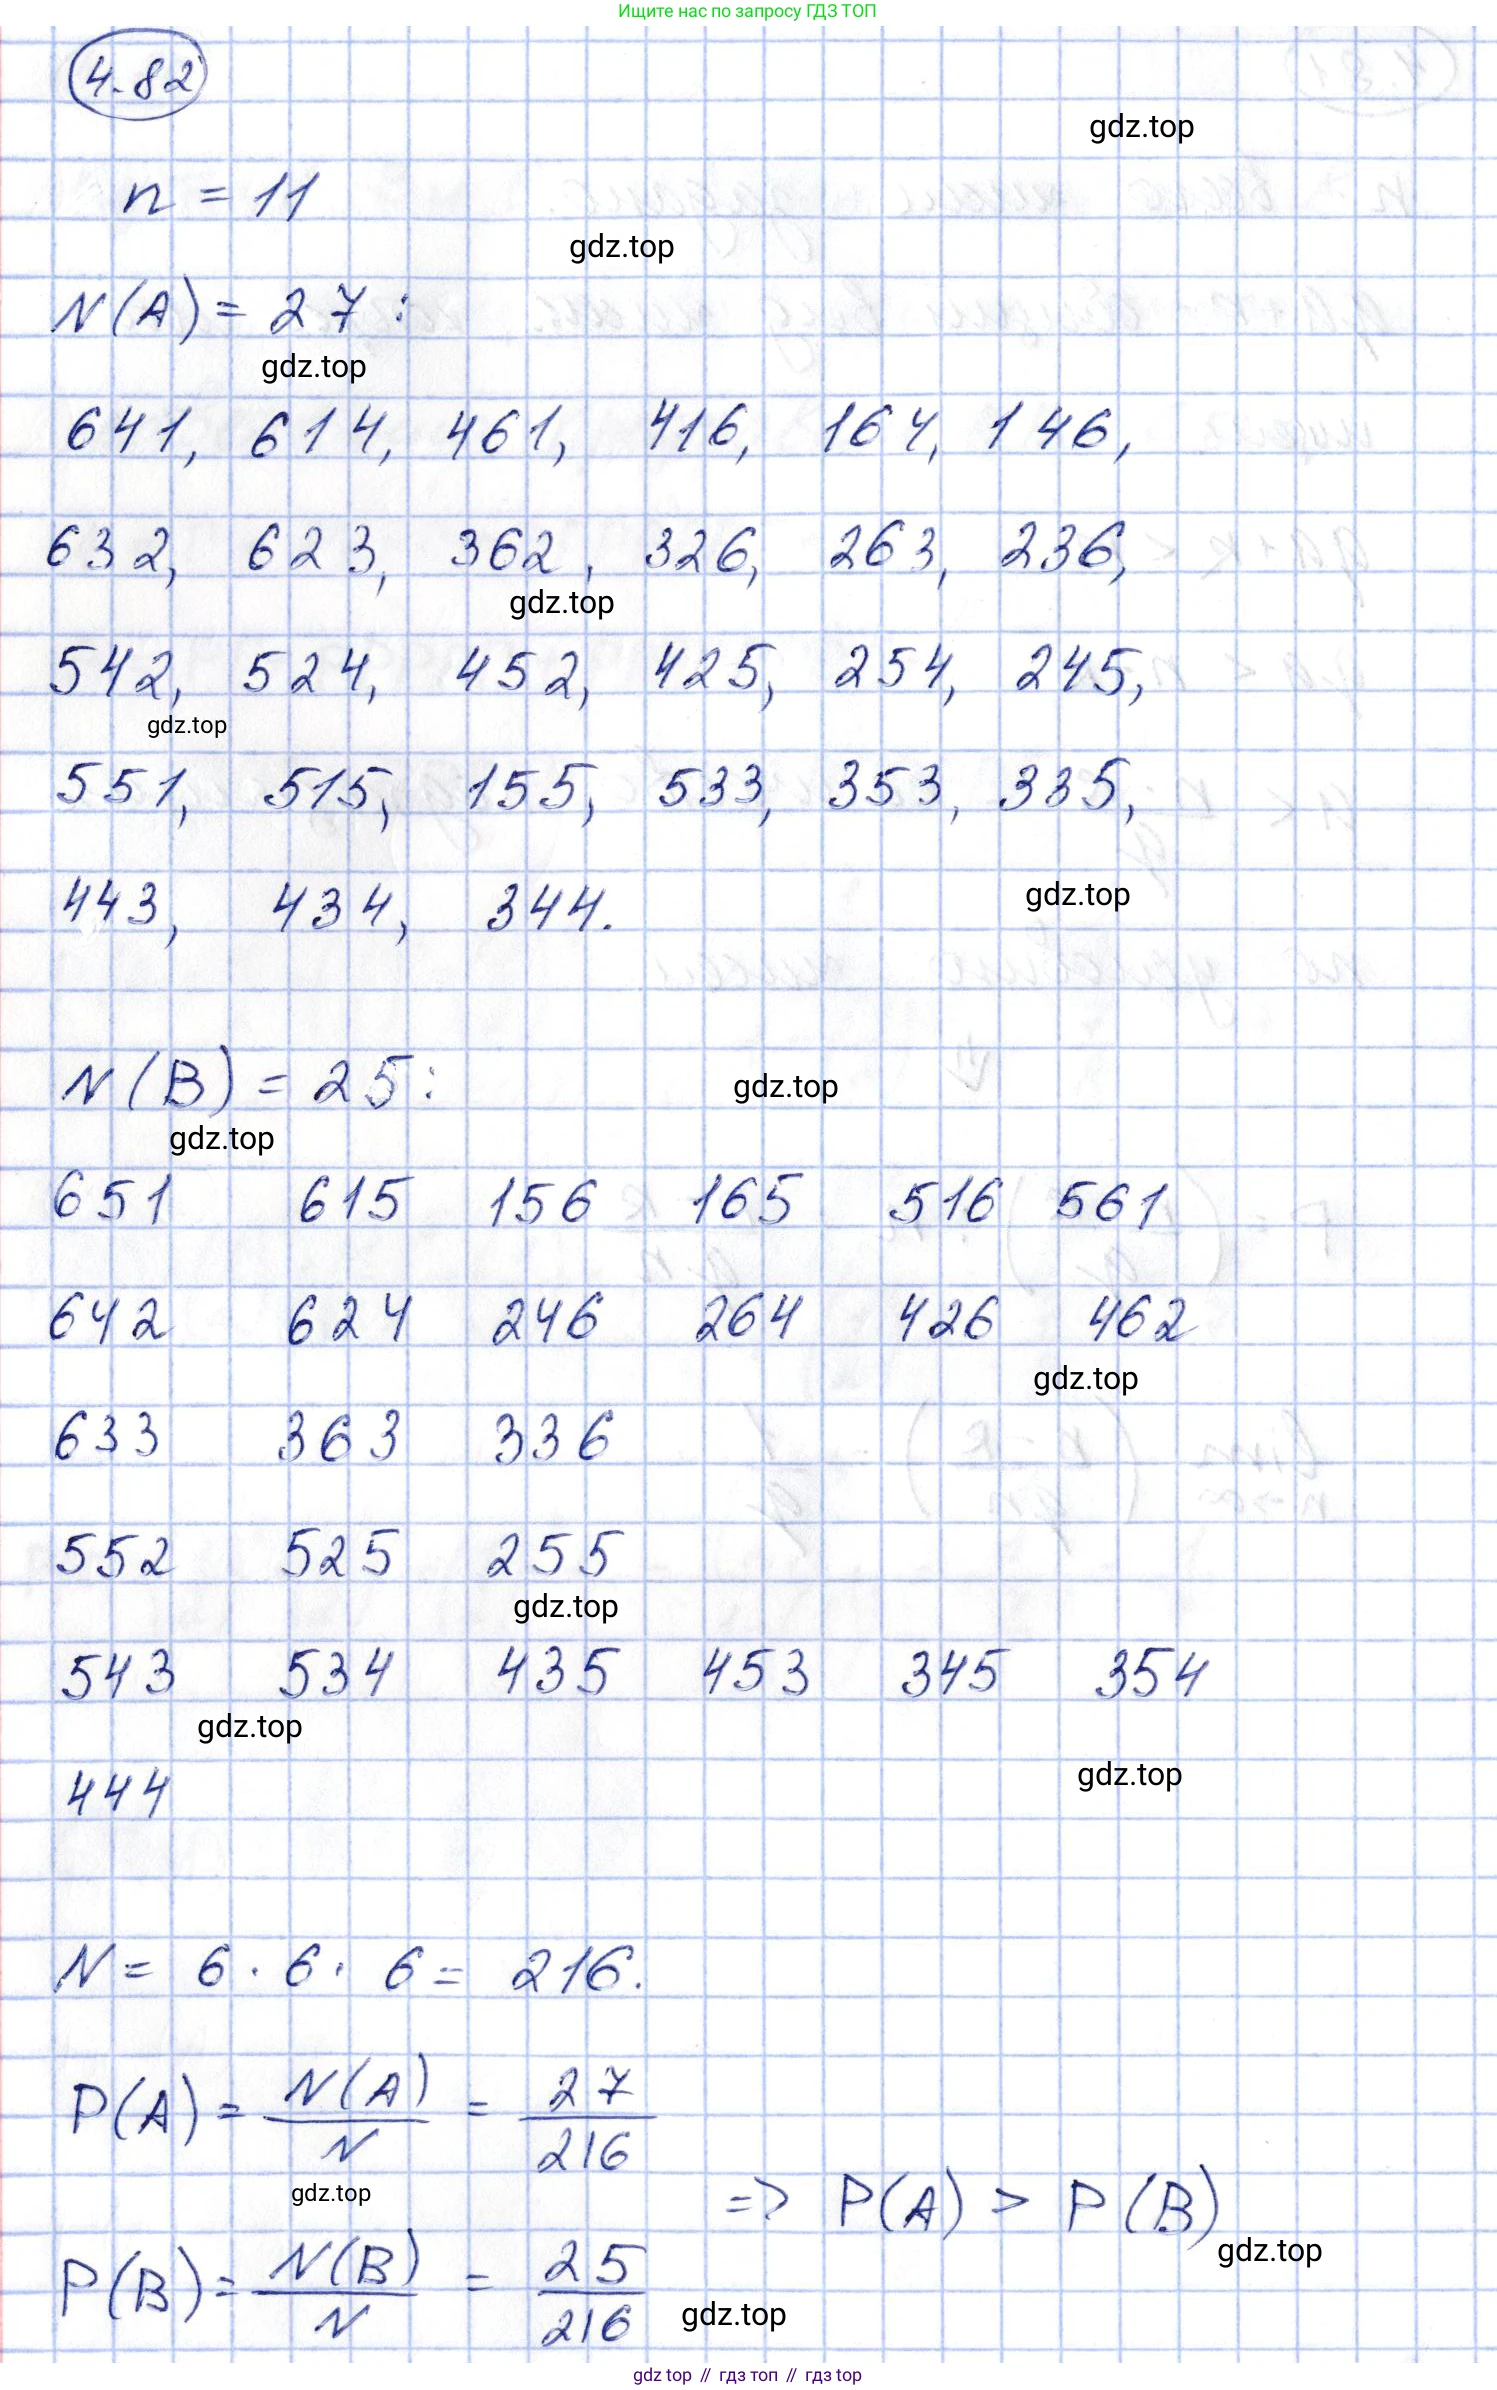 Ищите нас по запросу ГДЗ ТОП
4.82
gdz.top
n = 11
gdz.top
N(A) = 27:
gdz.top
641, 614, 461, 416, 164, 146,
632, 623, 362, 326, 263, 236,
gdz.top
542, 524, 452, 425, 254, 245,
gdz.top
551, 515, 155, 533, 353, 335,
443, 434, 344.
gdz.top
N(B) = 25:
gdz.top
gdz.top
651 615 156 165 516 561
642 624 246 264 426 462
gdz.top
633 363 336
552 525 255
gdz.top
543 534 435 453 345 354
gdz.top
444
gdz.top
N = 6 · 6 · 6 = 216.
P(A) = N(A)/N = 27/216
gdz.top
=> P(A) > P(B)
gdz.top
P(B) = N(B)/N = 25/216
gdz.top
gdz top // гдз топ // гдз top